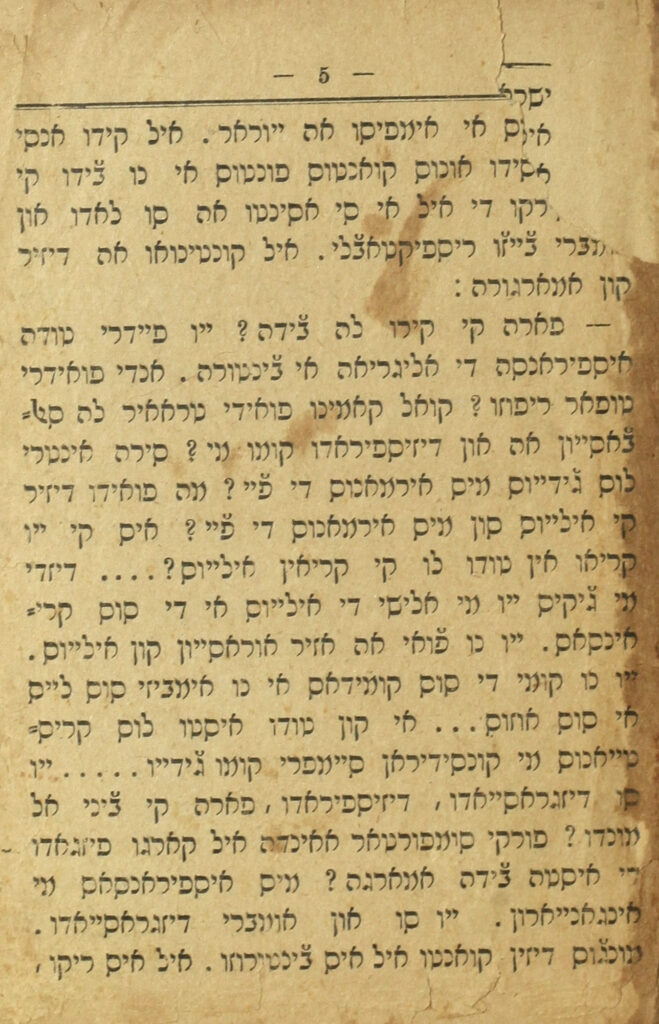 — 5 —
ישרא
אילוס אי אימפיסו אה ייוראר. איל קידו אנסי
אסידו אונוס קואנטוס פונטוס אי נו ב׳ידו קי
סירקו די איל אי סי אסינטו אה סו לאדו און
אומברי ב׳ייז׳ו ריספיקטאב׳לי. איל קונטינואו אה דיזיר
קון אמארגורה:
— פארה קי קירו לה ב׳ידה? ייו פיידרי טודה
איספיראנסה די אליגריאה אי ב׳ינטורה. אנדי פואידרי
טופאר ריפוזו? קואל קאמינו פואידי טראאיר לה סאל=
ב׳אסייון אה און דיזיספיראדו קומו מי? סירה אינטרי
לוס ג׳ידייוס מיס אירמאנוס די פ׳יי? מה פואידו דיזיר
קי אילייוס סון מיס אירמאנוס די פ׳יי? איס קי ייו
קריאו אין טודו לו קי קריאין אילייוס?.... דיזדי
מי ג׳יקיס ייו מי אלישי די אילייוס אי די סוס קרי=
אינסאס. ייו נו פ׳ואי אה אזיר אוראסייון קון אילייוס.
ייו נו קומי די סוס קומידאס אי נו אימביזי סוס לייס
אי סוס אחוס... אי קון טודו איסטו לוס קריס=
טייאנוס מי קונסידיראן סיימפרי קומו ג׳ידייו..... ייו
סו דיזגראסייאדו, דיזיספיראדו, פארה קי ב׳יני אל
מונדו? פורקי סומפורטאר אאינדה איל קארגו פיזגאדו
די איסטה ב׳ידה אמארגה? מיס איספיראנסאס מי
אינגאנייארון. ייו סו און אומברי דיזגראסייאדו.
מונג׳וס דיזין קואנטו איל איס ב׳ינטורוזו. איל איס ריקו,